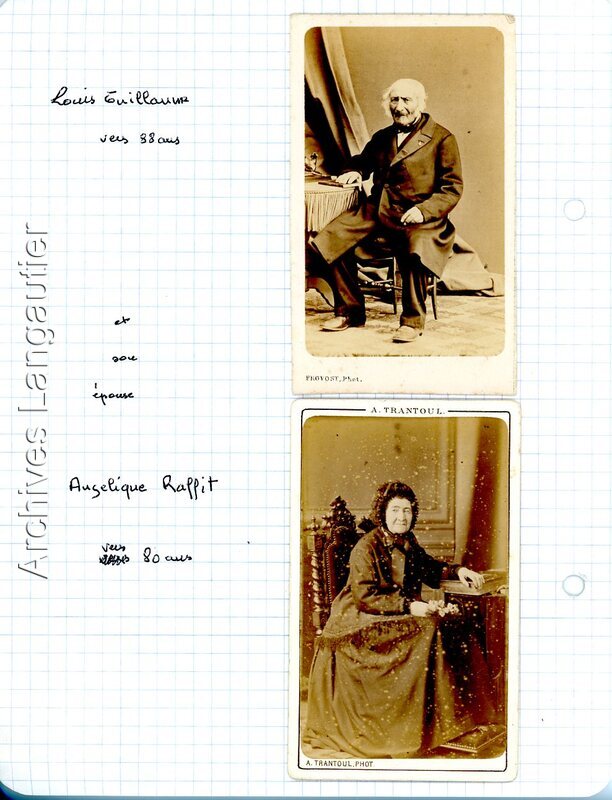 Louis Guillaume
vers 88 ans
et
son
épouse
Angelique Raffit
vers
80 ans
Archives Langautier
PROVOST, Phot.
A. TRANTOUL.
A. TRANTOUL, PHOT.